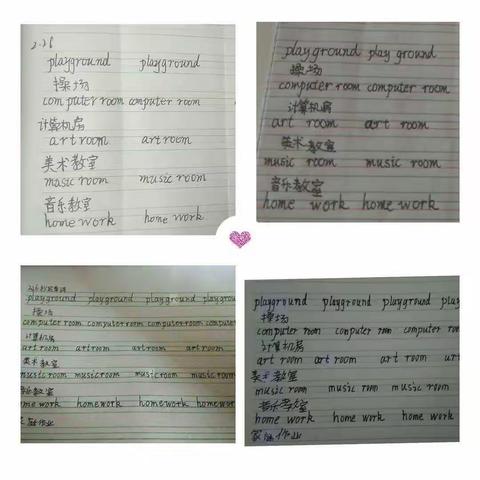 2.26
playground playground
操场
computer room computer room
计算机房
art room art room
美术教室
music room music room
音乐教室
home work home work
playground play ground
操场
computer room computer room
计算机房
art room art room
美术教室
music room music room
音乐教室
home work home work
playground playground playground playground
操场
computer room computer room computer room computer
计算机房
art room art room art room art room
美术教室
music room music room music room music room
音乐教室
home work home work home work home work
家庭作业
playground playground playground play
操场
computer room computer room computer room
计算机房
art room art room art room art
美术教室
music room music room music room
音乐教室
home work home work home work
家庭作业